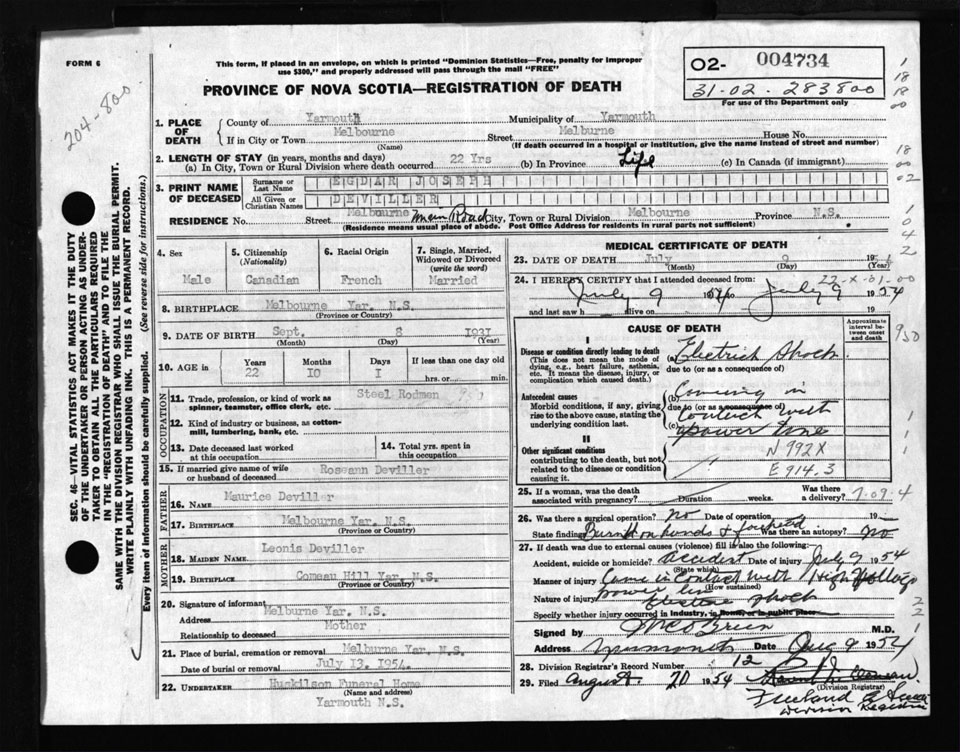 FORM 6
This form, if placed in an envelope, on which is printed "Dominion Statistics—Free, penalty for improper
use $300," and properly addressed will pass through the mail "FREE"
PROVINCE OF NOVA SCOTIA—REGISTRATION OF DEATH
O2- 004734
31-02-283800
For use of the Department only
204-800
SEC. 46—VITAL STATISTICS ACT MAKES IT THE DUTY
OF THE UNDERTAKER OR PERSON ACTING AS UNDER-
TAKER TO OBTAIN ALL THE PARTICULARS REQUIRED
IN THE "REGISTRATION OF DEATH" AND TO FILE THE
SAME WITH THE DIVISION REGISTRAR WHO SHALL ISSUE THE BURIAL PERMIT.
WRITE PLAINLY WITH UNFADING INK. THIS IS A PERMANENT RECORD.
Every item of information should be carefully supplied. (See reverse side for instructions.)
1. PLACE OF DEATH County of Yarmouth Municipality of Yarmouth
If in City or Town Melbourne Street Melburne House No.
(Name) (If death occurred in a hospital or institution, give the name instead of street and number)
2. LENGTH OF STAY (in years, months and days)
(a) In City, Town or Rural Division where death occurred 22 Yrs (b) In Province Life (c) In Canada (if immigrant)
3. PRINT NAME OF DECEASED Surname or Last Name EGDAR JOSEPH
All Given or Christian Names DEVILLER
RESIDENCE No. Street Melbourne Main Road City, Town or Rural Division Melbourne Province N.S.
(Residence means usual place of abode. Post Office Address for residents in rural parts not sufficient)
4. Sex Male
5. Citizenship (Nationality) Canadian
6. Racial Origin French
7. Single, Married, Widowed or Divorced (write the word) Married
8. BIRTHPLACE Melbourne Yar. N.S.
(Province or Country)
9. DATE OF BIRTH Sept. 8 1931
(Month) (Day) (Year)
10. AGE in Years 22 Months 10 Days 1 If less than one day old hrs. or min.
OCCUPATION
11. Trade, profession, or kind of work as spinner, teamster, office clerk, etc. Steel Rodman
12. Kind of industry or business, as cotton-mill, lumbering, bank, etc.
13. Date deceased last worked at this occupation
14. Total yrs. spent in this occupation
15. If married give name of wife or husband of deceased Roseann Deviller
FATHER
16. NAME Maurice Deviller
17. BIRTHPLACE Melbourne Yar. N.S.
(Province or Country)
MOTHER
18. MAIDEN NAME Leonis Deviller
19. BIRTHPLACE Comeau Hill Yar. N.S.
(Province or Country)
20. Signature of informant
Address Melburne Yar. N.S.
Relationship to deceased Mother
21. Place of burial, cremation or removal Melburne Yar. N.S.
Date of burial or removal July 13. 1954.
22. UNDERTAKER Huskilson Funeral Home
(Name and address)
Yarmouth N.S.
MEDICAL CERTIFICATE OF DEATH
23. DATE OF DEATH July 9 195
(Month) (Day) (Year)
24. I HEREBY CERTIFY that I attended deceased from: 22-X-01-00
July 9 1954 to July 9 1954
and last saw h alive on 19
CAUSE OF DEATH
Approximate interval between onset and death
I
Disease or condition directly leading to death
(This does not mean the mode of dying, e.g., heart failure, asthenia, etc. It means the disease, injury, or complication which caused death.)
(a) Electrick Shock
due to (or as a consequence of)
Antecedent causes
Morbid conditions, if any, giving rise to the above cause, stating the underlying condition last.
(b) Coming in
due to (or as a consequence of)
(c) Contact with
power line
II
Other significant conditions
contributing to the death, but not related to the disease or condition causing it.
N 992X
E 914.3
25. If a woman, was the death associated with pregnancy? Duration weeks. Was there a delivery?
26. Was there a surgical operation? No Date of operation 19
State findings Burnt on hands & forehead Was there an autopsy? No
27. If death was due to external causes (violence) fill in also the following:—
Accident, suicide or homicide? Accident Date of injury July 9 1954
(State which)
Manner of injury Came in Contact with High Voltage
(How sustained)
power line
Nature of injury Electric shock
Specify whether injury occurred in industry, in home, or in public place
Signed by M.D.
Address Yarmouth Date Aug 9 1954
28. Division Registrar's Record Number 12
29. Filed August 20 1954
(Division Registrar)
Division Registrar